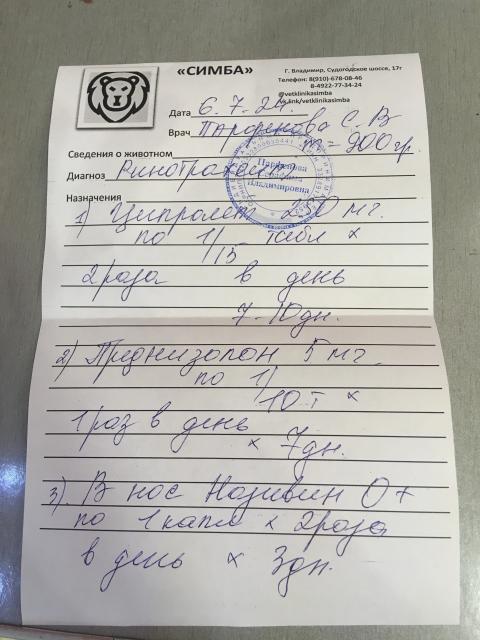 «СИМБА»
Г. Владимир, Судогодское шоссе, 17г
Телефон: 8(910)-678-08-46
8-4922-77-34-24
@vetklinikasimba
vk.link/vetklinikasimba
Дата 6.7.24.
Врач Парфенова С. В
Сведения о животном m - 900 гр.
Диагноз Ринотрахеит
Парфенова
Владимировна
Назначения
1) Ципролет 250 мг.
по 1/15 табл х
2 раза в день
7-10 дн.
2) Преднизолон 5 мг.
по 1/10 т х
1 раз в день
х 7 дн.
3). В нос Називин 0+
по 1 капл х 2 раза
в день х 3 дн.